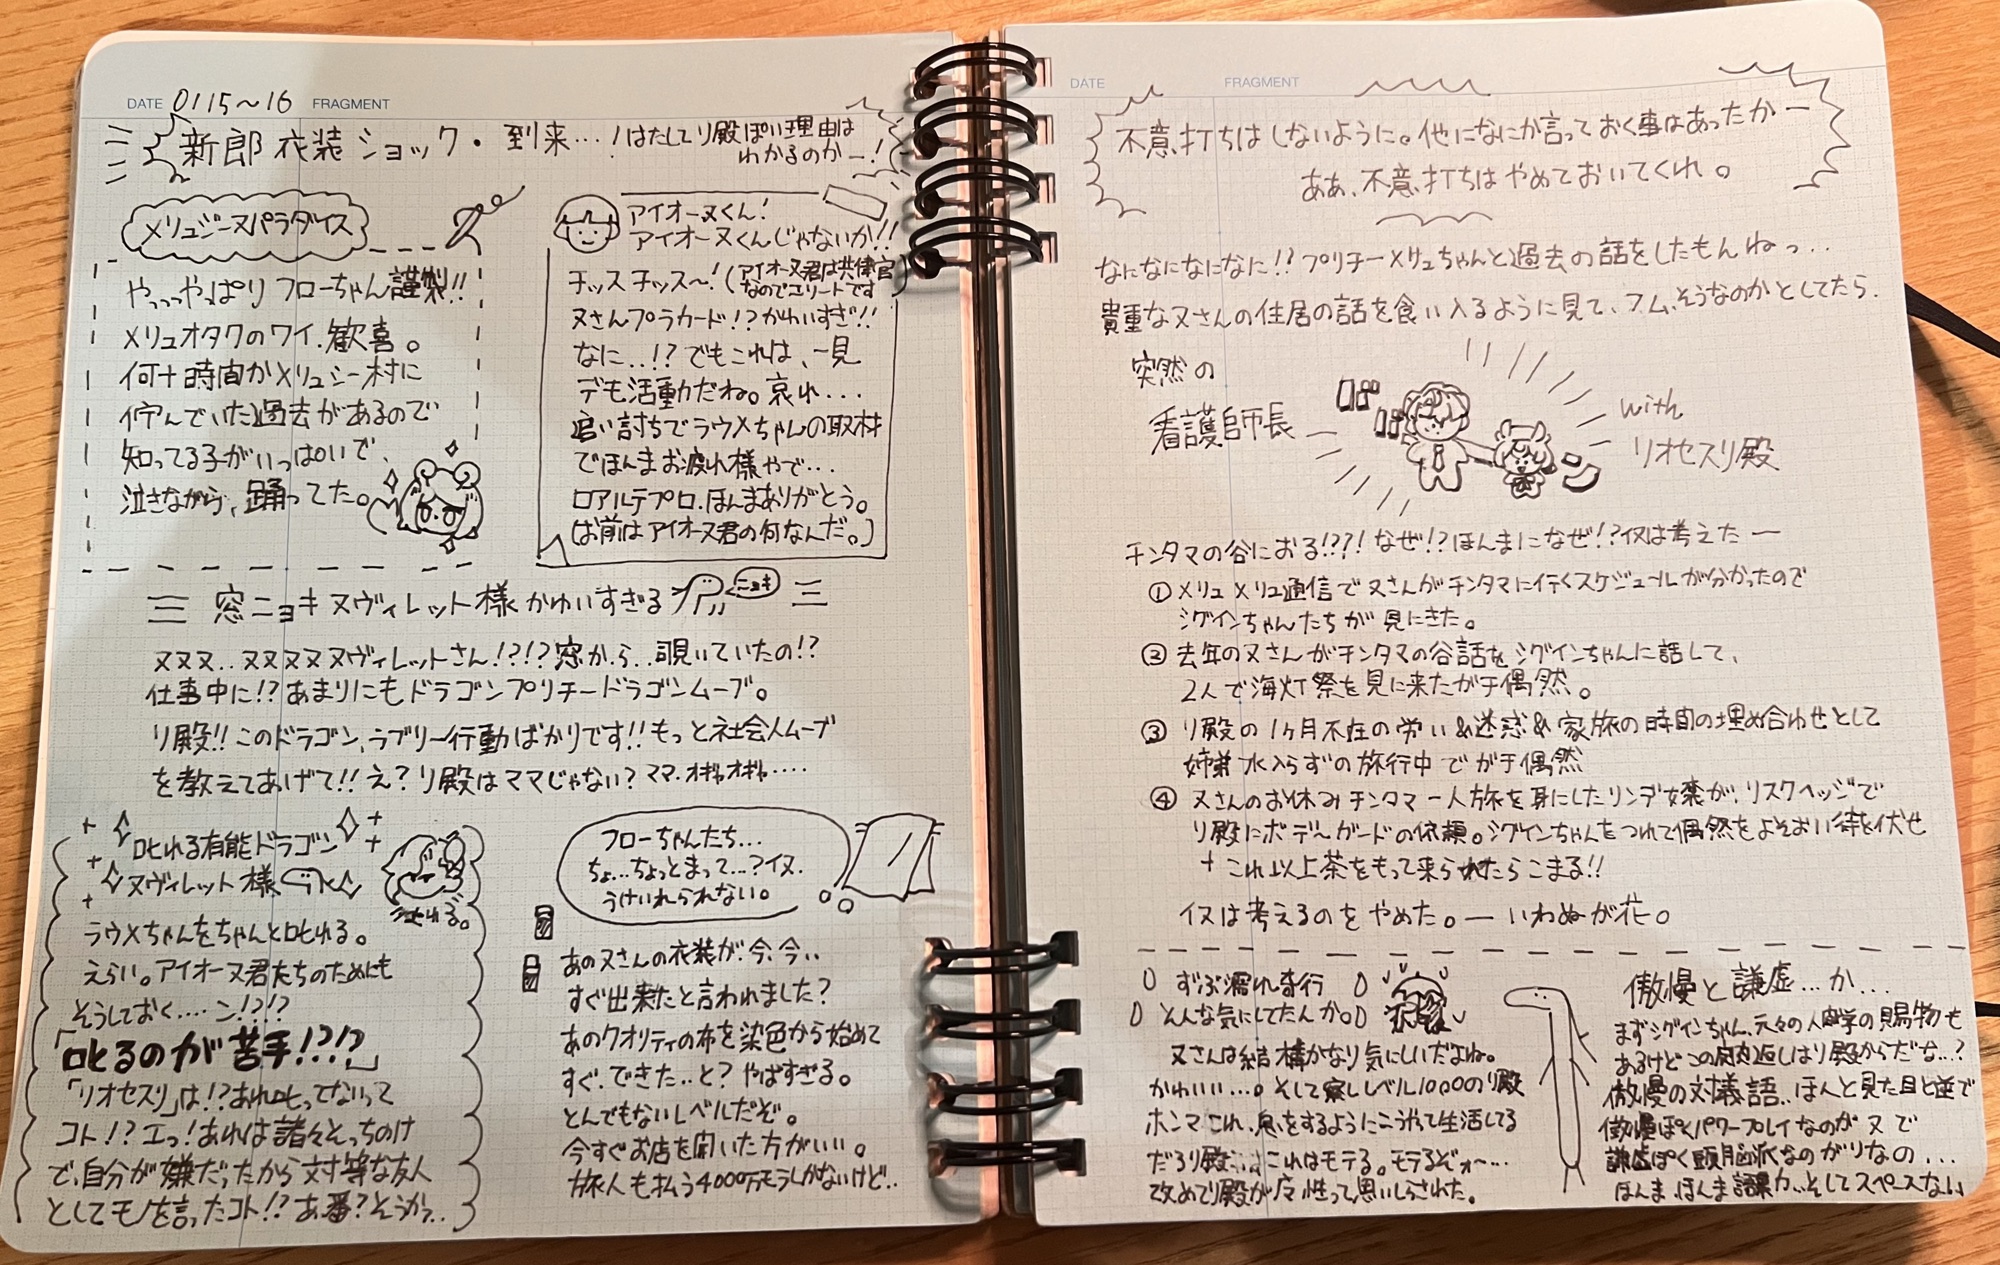 DATE 0115～16 FRAGMENT
新郎衣装ショック・到来…！はたしてリ殿ぽい理由は
わかるのかー！
メリュジーヌパラダイス
やっっやっぱりフローちゃん謹製!!
メリュオタクのワイ、歓喜。
何十時間かメリュシー村に
佇んでいた過去があるので
知ってる子がいっぱいいで、
泣きながら、踊ってた。
アイオーヌくん！
アイオーヌくんじゃないか!!
チッスチッス～！(アイオーヌ君は共律官
なのでエリートです)
ヌさんプラカード!?かわいすぎ!!
なに..!?でもこれは、一見
デモ活動だね。哀れ...
追い討ちでラウメちゃんの取材
でほんまお疲れ様やで...
ロアルテプロ、ほんまありがとう。
(お前はアイオーヌ君の何なんだ。)
三 窓ニョキヌヴィレット様かわいすぎる ニョキ 三
ヌヌヌ..ヌヌヌヌヌヴィレットさん!?!?窓から..覗いていたの!?
仕事中に!?あまりにもドラゴンプリチードラゴンムーブ。
リ殿!!このドラゴン、ラブリー行動ばかりです!!もっと社会人ムーブ
を教えてあげて!!え?リ殿はママじゃない?ママ、オギャオギャ....
叱れる有能ドラゴン
ヌヴィレット様
叱れる。
ラウメちゃんをちゃんと叱れる。
えらい。アイオーヌ君たちのためにも
そうしておく....ン!?!?
「叱るのが苦手!?!?」
「リオセスリ」は!?あれ叱ってないって
コト!?エっ!あれは諸々そっちのけ
で、自分が嫌だったから対等な友人
としてモノを言ったコト!?あ、番?そうかぁ..
フローちゃんたち...
ちょ...ちょっとまって...?イヌ、
うけいれられない。
あのヌさんの衣装が、今、今..
すぐ出来たと言われました?
あのクオリティの布を染色から始めて
すぐ、できた..と?やばすぎる。
とんでもないレベルだぞ。
今すぐお店を開いた方がいい。
旅人も払う4000万モラしかないけど..
DATE FRAGMENT
不意打ちはしないように。他になにか言っておく事はあったかー
ああ、不意打ちはやめておいてくれ。
なになになになに!?プリチーメリュちゃんと過去の話をしたもんねっ...
貴重なヌさんの住居の話を食い入るように見て、フム、そうなのかとしてたら、
突然の
看護師長
ババーン
with
リオセスリ殿
チンタマの谷におる!??!なぜ!?ほんまになぜ!?イヌは考えたー
①メリュメリュ通信でヌさんがチンタマに行くスケジュールが分かったので
シグインちゃんたちが見にきた。
②去年のヌさんがチンタマの谷話をシグインちゃんに話して、
2人で海灯祭を見に来たガチ偶然。
③リ殿の1ヶ月不在の労い&迷惑&家族の時間の埋め合わせとして
姉弟水入らずの旅行中でガチ偶然
④ヌさんのお休みチンタマ一人旅を耳にしたリンデ嬢が、リスクヘッジで
リ殿にボディーガードの依頼。シグインちゃんをつれて偶然をよそおい待ち伏せ
+これ以上茶をもって来られたらこまる!!
イヌは考えるのをやめた。ーいわぬが花。
ずぶ濡れ奇行
そんな気にしてたんか。
ヌさんは結構かなり気にしいだよね。
かわいい...。そして察しレベル1000のリ殿
ホンマこれ、息をするようにこうやって生活してる
だろリ殿...これはモテる。モテるぞォ～...
改めてリ殿が魔性って思いしらされた。
傲慢と謙虚...か...
まずシグインちゃん、元々の人間学の賜物も
あるけどこの肉返しはリ殿からだな...?
傲慢の対義語..ほんと見た目と逆で
傲慢ぽくパワープレイなのがヌで
謙虚ぽく頭脳派なのがリなの...
ほんま、ほんま語彙力..そしてスペースない